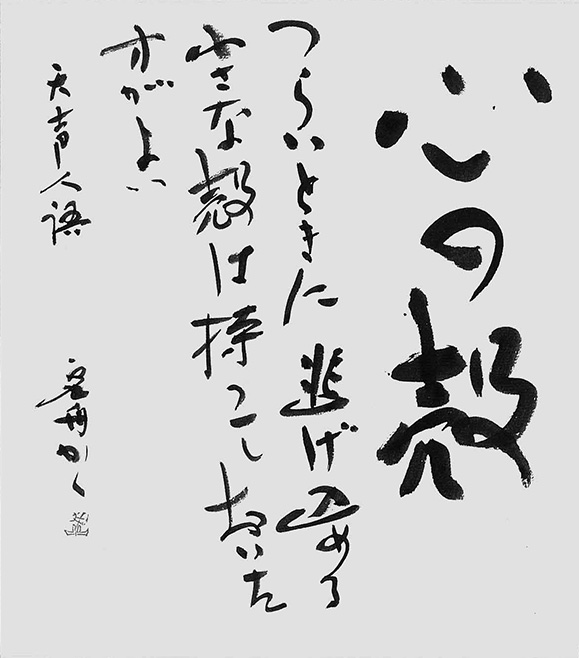 心の殻
つらいときに逃げ込める
小さな殻は持っておいた
方がよい
天声人語
舟かく